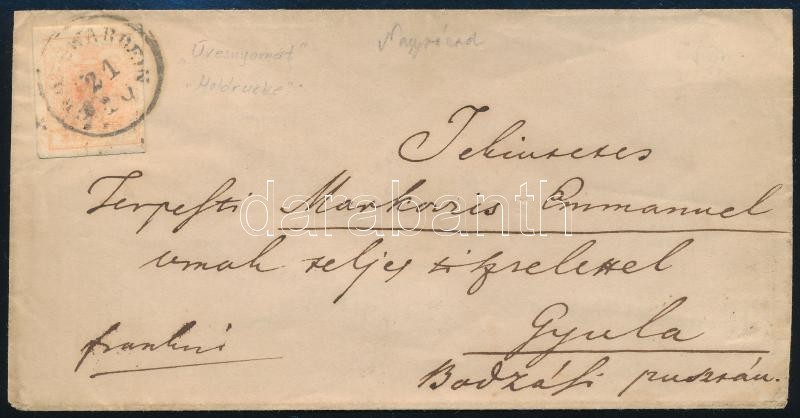 GROSSWARDEIN
21
"Üvesnyomat"
"Holdrucke"
Nagyvárad
Tekintetes
Terpesti Markovis Emmanuel
urnak teljes tisztelettel
Gyula
Bodzási pusztán.
frankirt
darabanth